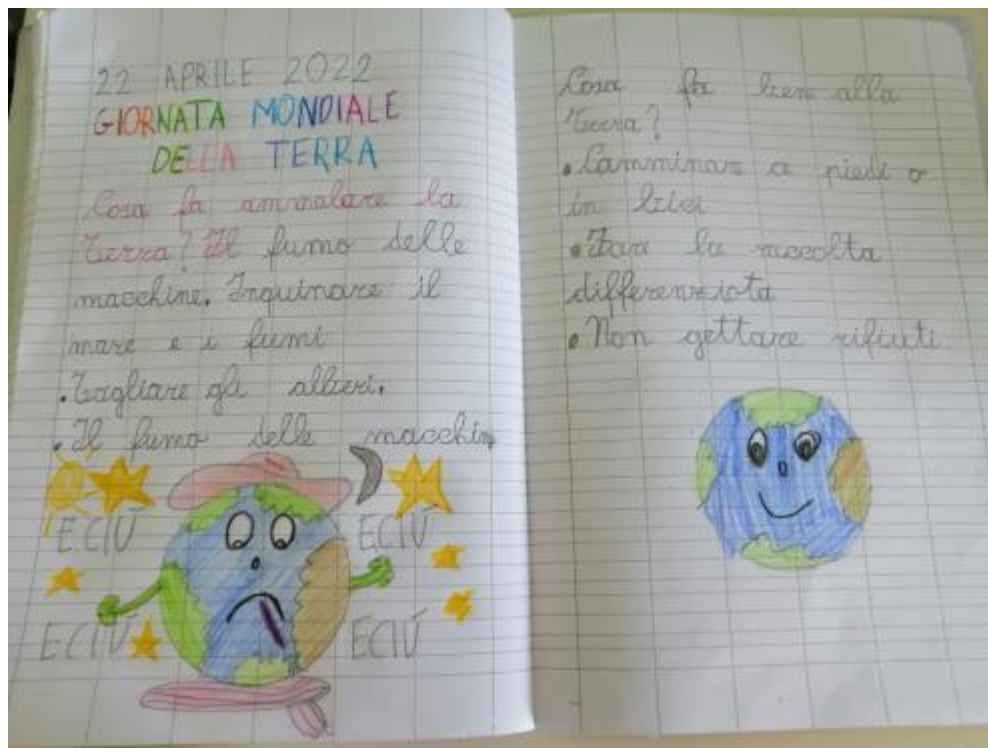 22 APRILE 2022
GIORNATA MONDIALE
DELLA TERRA
Cosa fa ammalare la
Terra? Il fumo delle
macchine. Inquinare il
mare e i fiumi
. Tagliare gli alberi.
. Il fumo delle macchin
ECIÚ ECIÚ
ECIÚ ECIÚ
Cosa fa bene alla
Terra?
. Camminare a piedi o
in bici
. Fare la raccolta
differenziata
. Non gettare rifiuti